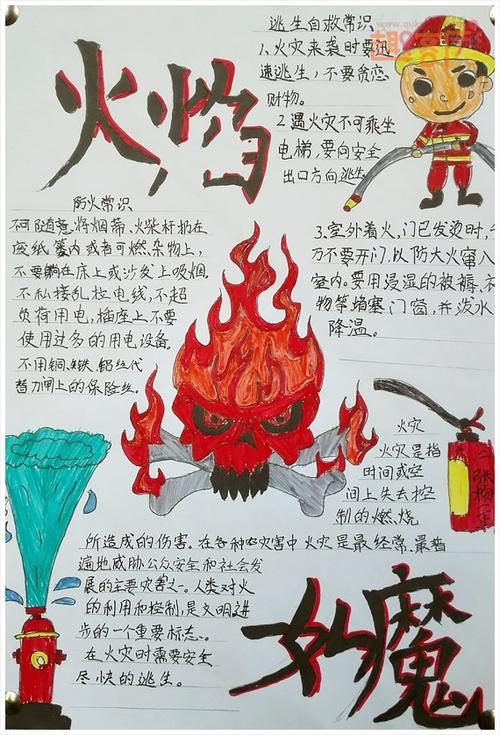 火焰
逃生自救常识
1.火灾来袭时要迅
速逃生,不要贪恋
财物。
2.遇火灾不可乘坐
电梯,要向安全
出口方向逃生
防火常识
不可随意将烟蒂、火柴杆扔在
废纸篓内或者可燃杂物上,
不要躺在床上或沙发上吸烟
不私接乱拉电线,不超
负荷用电,插座上不要
使用过多的用电设备
不用铜、铁、铝丝代
替刀闸上的保险丝。
3.室外着火、门已发烫时,千
万不要开门,以防大火窜入
室内。要用浸湿的被褥、衣
物等堵塞门窗,并泼水
降温。
火灾
火灾是指
时间或空
间上失去控
制的燃烧
所造成的伤害。在各种灾害中火灾是最经常、最普
遍地威胁公众安全和社会发
展的主要灾害之一。人类对火
的利用和控制,是文明进
步的一个重要标志。
在火灾时需要安全
尽快的逃生。
如魔